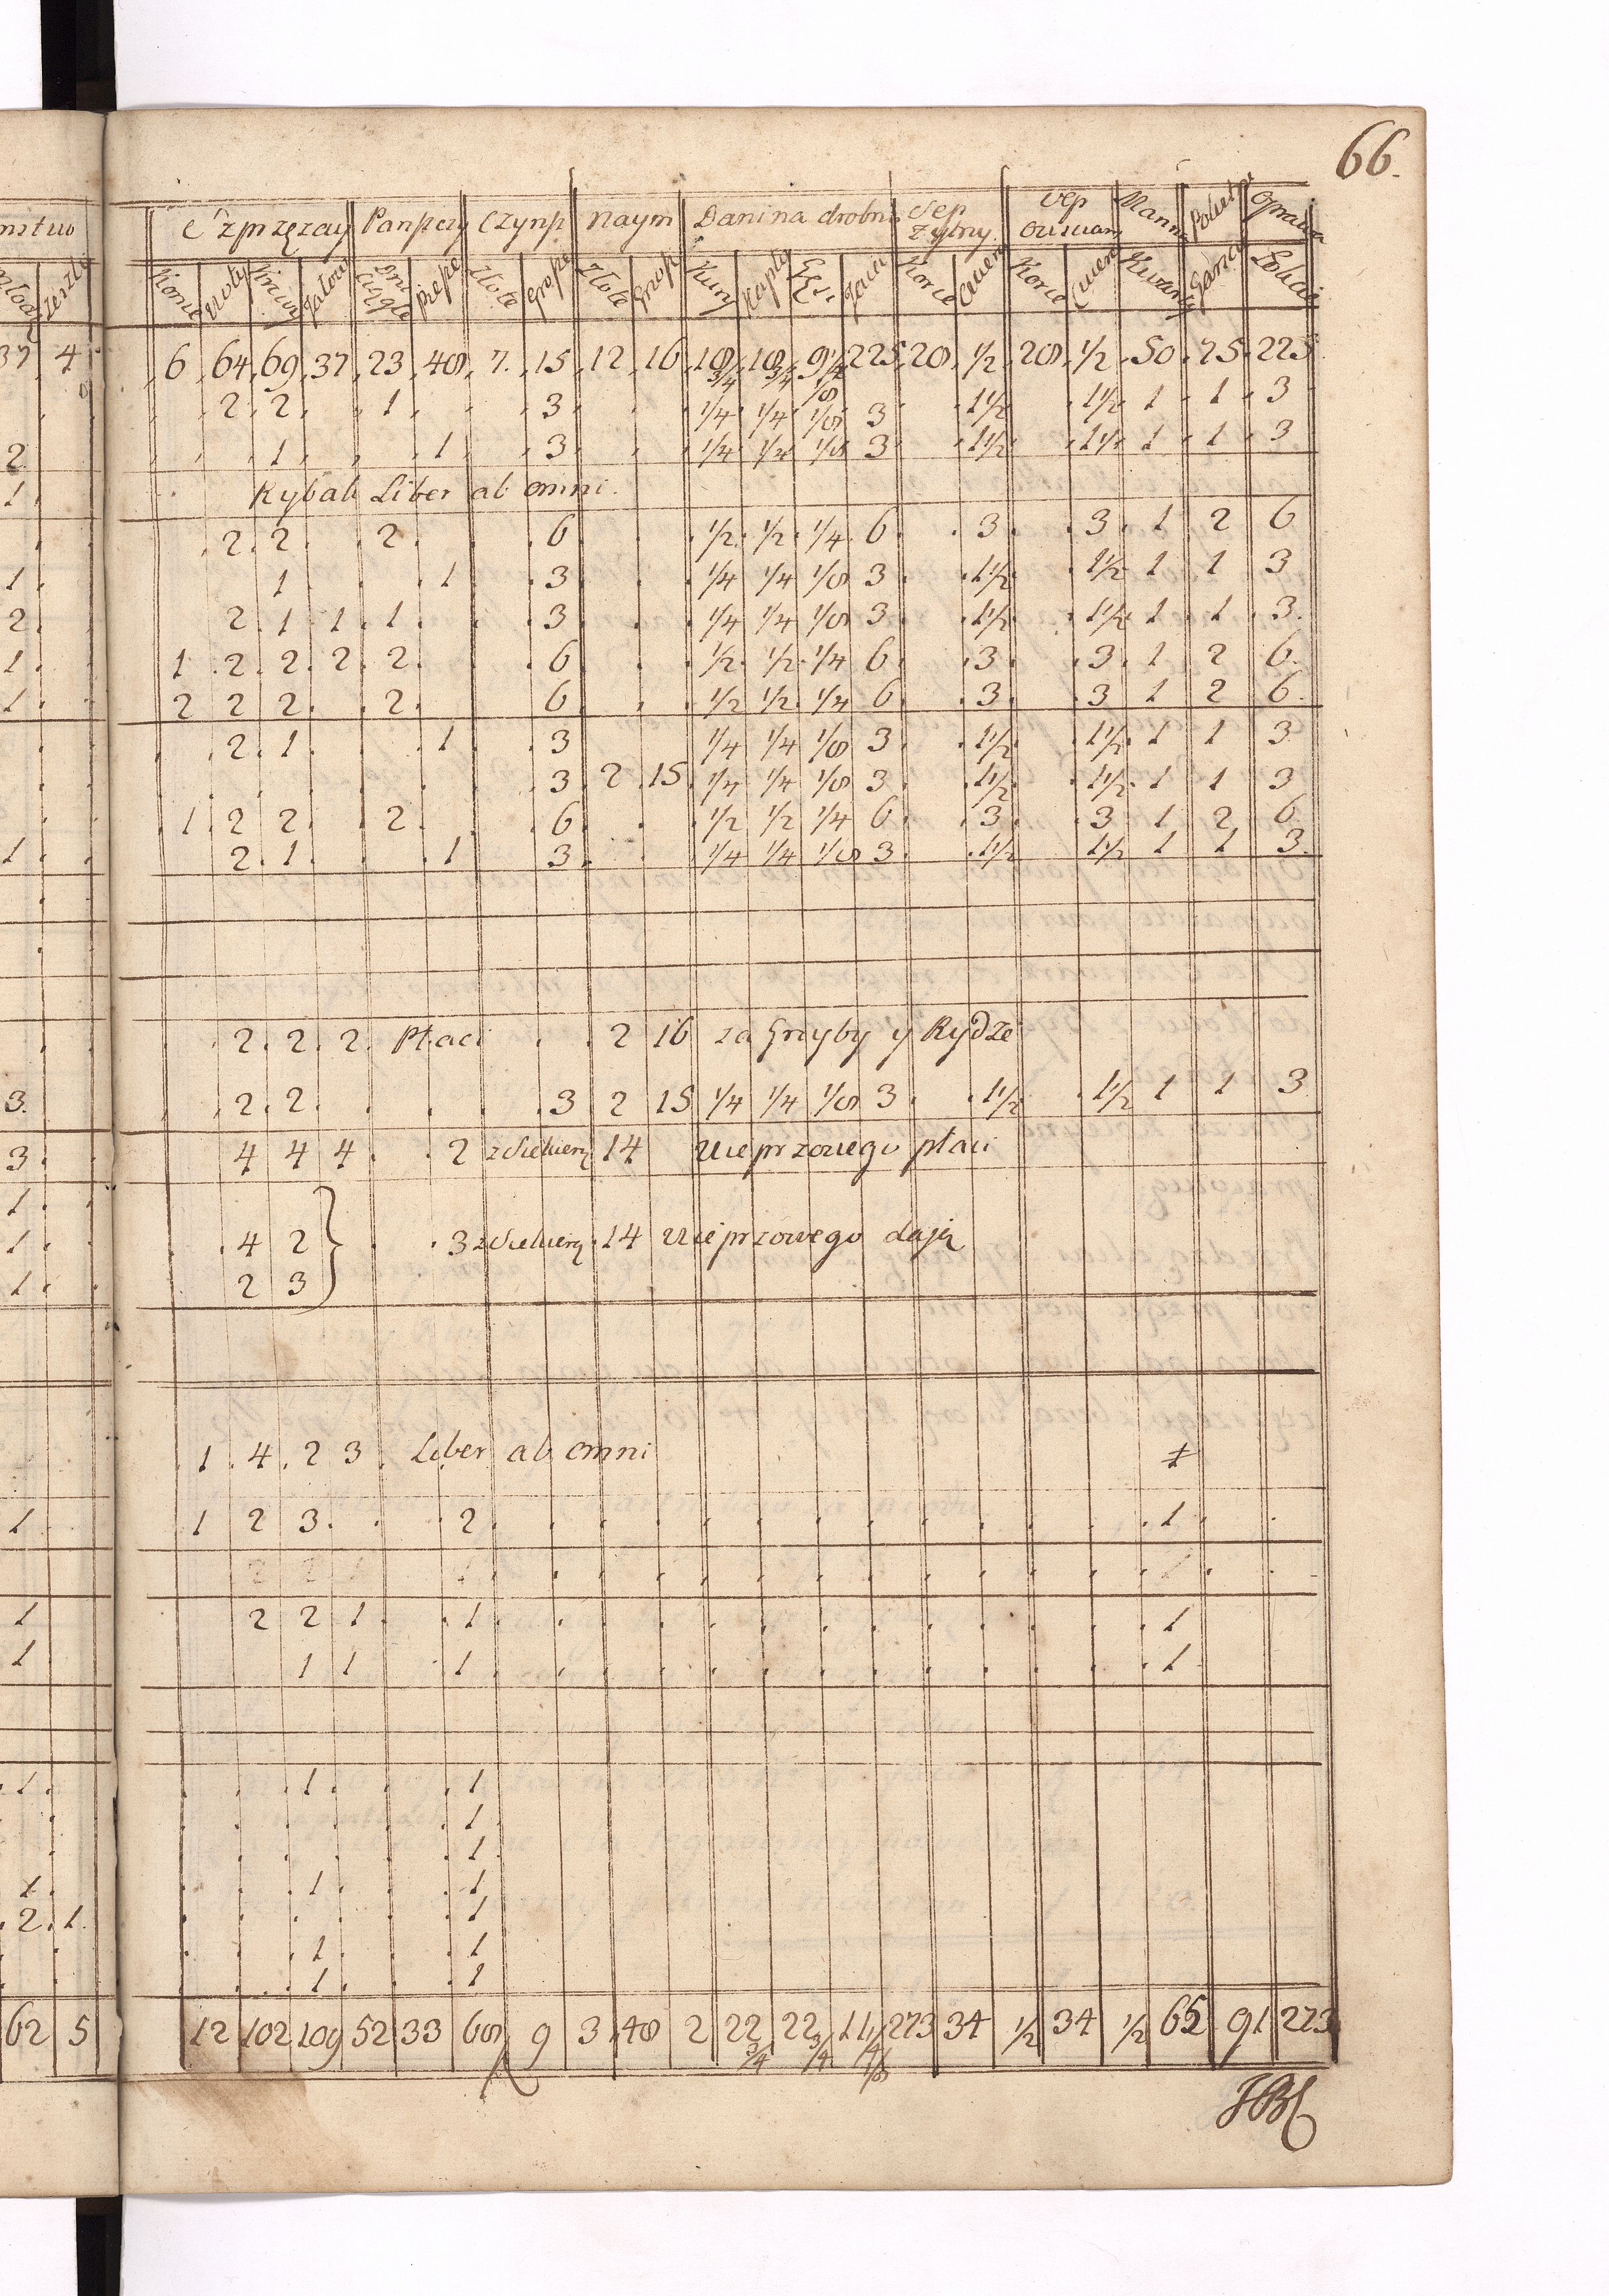 66.
nstwo Czprzęzay Panszcz Czynsz Naym Danina drobna Sep Żytny Sep owsiany Manna
Konie Woły Krowy Jałow Dni Ciągłe Piesze Złote Grosze Złote Grosze Kury Kapły Gęsi Jaia Korce Cwierc Korce Cwierc Garce Łokcie
37 4 6 64 69 37 23 48 7. 15 12 16 18 3/4 18 3/4 9 1/4 1/8 225 28 1/2 28 1/2 50 75 225
2 2 1 3 1/4 1/4 1/8 3 1 1/2 1 1/2 1 1 3
2 1 1 3 1/4 1/4 1/8 3 1 1/2 1 1/2 1 1 3
1 Rybak Liber ab omni.
2 2 2 6 1/2 1/2 1/4 6 3 3 1 2 6
1 1 1 3 1/4 1/4 1/8 3 1 1/2 1 1/2 1 1 3
2 2 1 1 1 3 1/4 1/4 1/8 3 1 1/2 1 1/2 1 1 3
1 1 2 2 2 2 6 1/2 1/2 1/4 6 3 3 1 2 6
1 2 2 2 2 6 1/2 1/2 1/4 6 3 3 1 2 6
2 1 1 3 1/4 1/4 1/8 3 1 1/2 1 1/2 1 1 3
3 2 15 1/4 1/4 1/8 3 1 1/2 1 1/2 1 1 3
1 2 2 2 6 1/2 1/2 1/4 6 3 3 1 2 6
1 2 1 1 3 1/4 1/4 1/8 3 1 1/2 1 1/2 1 1 3
2 2 2 Płaci 2 16 za Grzyby y Rydze
3 2 2 3 2 15 1/4 1/4 1/8 3 1 1/2 1 1/2 1 1 3
3 4 4 4 2 z Siekierą 14 Wieprzowego płaci
1
1 4 2 3 z Siekierą 14 Wieprzowego dają
1 2 3
1 4 2 3 Liber ab omni 1
1 1 2 3 2 1
2 2 1 1 1
1 2 2 1 1 1
1 1 1 1 1
1 1 1
1
1
1 1 1
2 1 1
1 1
1 1
62 5 12 102 109 52 33 68 9 3 48 2 22 3/4 22 3/4 11 1/4 1/8 273 34 1/2 34 1/2 65 91 273